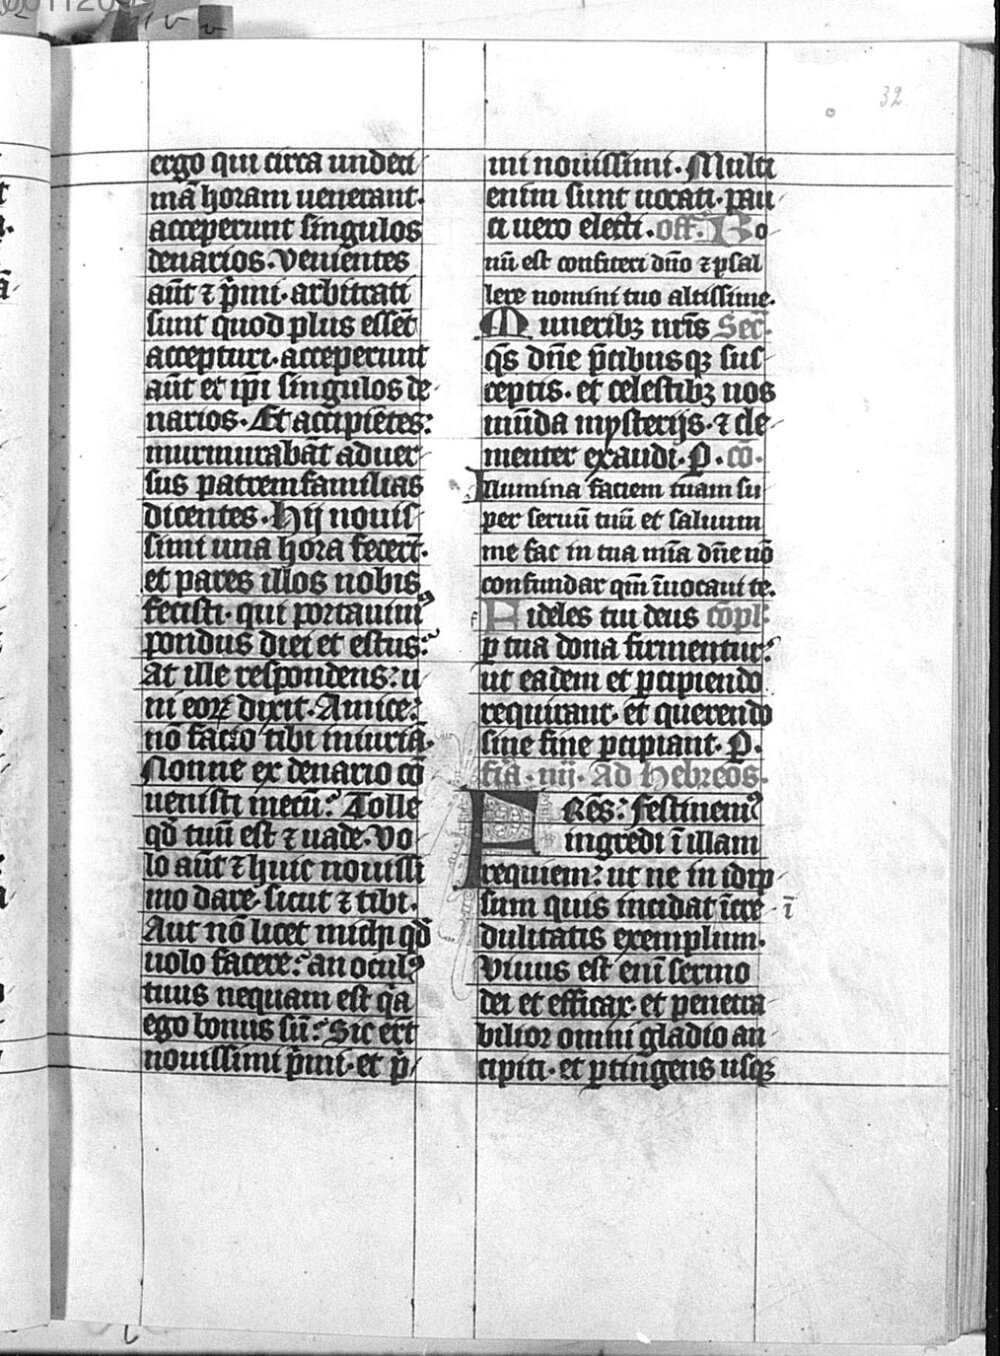 32
ergo qui circa undeci
mā horam uenerant.
acceperunt singulos
denarios. Venientes
aūt ⁊ p̄mi. arbitrati
sunt quod plus essēt
accepturi. acceperunt
aūt et ip̄i singulos de
narios. Et accipiētes:
murmurabāt aduer
sus patremfamilias
dicentes. Hij nouis
simi una hora fecert̄.
et pares illos nobis
fecisti. qui portauimꝰ
pondus diei et estus:
At ille respondens: u
ni eoꝝ dixit. Amice:
nō facio tibi iniuriā.
Nonne ex denario cō
uenisti mecū: Tolle
qd̄ tuū est ⁊ uade. Vo
lo aūt ⁊ huic nouissi
mo dare. sicut ⁊ tibi.
Aut nō licet michi qd̄
uolo facere: an oculꝰ
tuus nequam est q̄a
ego bonus sū: Sic ert̄
nouissimi p̄mi. et p̄
mi nouissimi. Multi
enim sunt uocati. pau
ci uero electi. off. Bo
nū est confiteri dn̄o ⁊ psal
lere nomini tuo altissime.
Muneribꝫ nr̄is Secr̄.
qs̄ dn̄e p̄cibusqꝫ sus
ceptis. et celestibꝫ nos
mūda mysterijs. ⁊ cle
menter exaudi. P. cō.
Illumina faciem tuam su
per seruū tuū et saluum
me fac in tua mīa dn̄e nō
confundar qm̄ īuocaui te.
Fideles tui deus cōpl.
ꝑ tua dona firmentur:
ut eadem et ꝑcipiendo
requirant. et querendo
sine fine ꝑcipiant. P.
fīa. iiij. Ad Hebreos.
FRēs: festinemꝰ
ingredi ī illam
requiem: ut ne in idip
sum quis incidat īcre ī
dulitatis exemplum.
Viuus est enī sermo
dei et efficax. et penetra
bilior omni gladio an
cipiti. et ꝑtingens usqꝫ